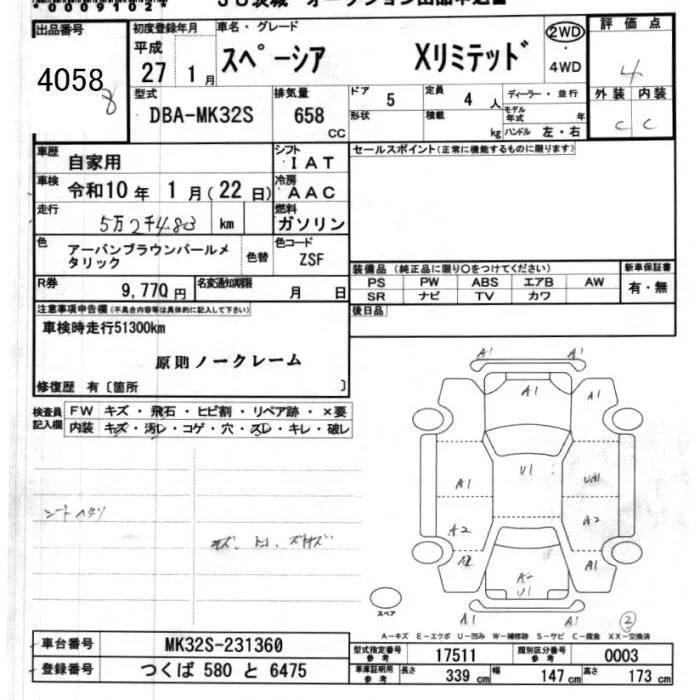 *0009102*
出品番号
4058
8
初度登録年月
平成
27 1月
車名・グレード
スペーシア Xリミテッド
2WD
・
4WD
評価点
4
型式
DBA-MK32S
排気量
658
CC
ドア
5
形状
定員
4 人
積載
kg
ディーラー・並行
モデル年式 年
ハンドル 左・右
外装 内装
C C
車歴
自家用
シフト
IAT
車検
令和10年 1月(22日)
冷房
AAC
走行
5万2千483 km
燃料
ガソリン
色
アーバンブラウンパールメタリック
色替
色コード
ZSF
R券
9,770円
名変通知期限
月 日
セールスポイント(正常に機能するものに限ります)
装備品 (純正品に限り○をつけてください)
PS PW ABS エアB AW
SR ナビ TV カワ
新車保証書
有・無
後日品
注意事項申告欄(不具合内容等は具体的に記入して下さい)
車検時走行51300km
原則ノークレーム
修復歴 有〔箇所 〕
検査員記入欄
FW キズ・飛石・ヒビ割・リペア跡・×要
内装 キズ・汚レ・コゲ・穴・スレ・キレ・破レ
シートヘタリ
A1 A1
A1 A1
U1
A1
A2 A2
A2
A2
U1
スペア
2
A-キズ E-エクボ U-凹み W-補修跡 S-サビ C-腐食 XX-交換済
車台番号
MK32S-231360
登録番号
つくば 580 と 6475
型式指定番号
参考
17511
類別区分番号
参考
0003
車庫証明用
参考
長さ 339 cm 幅 147 cm 高さ 173 cm